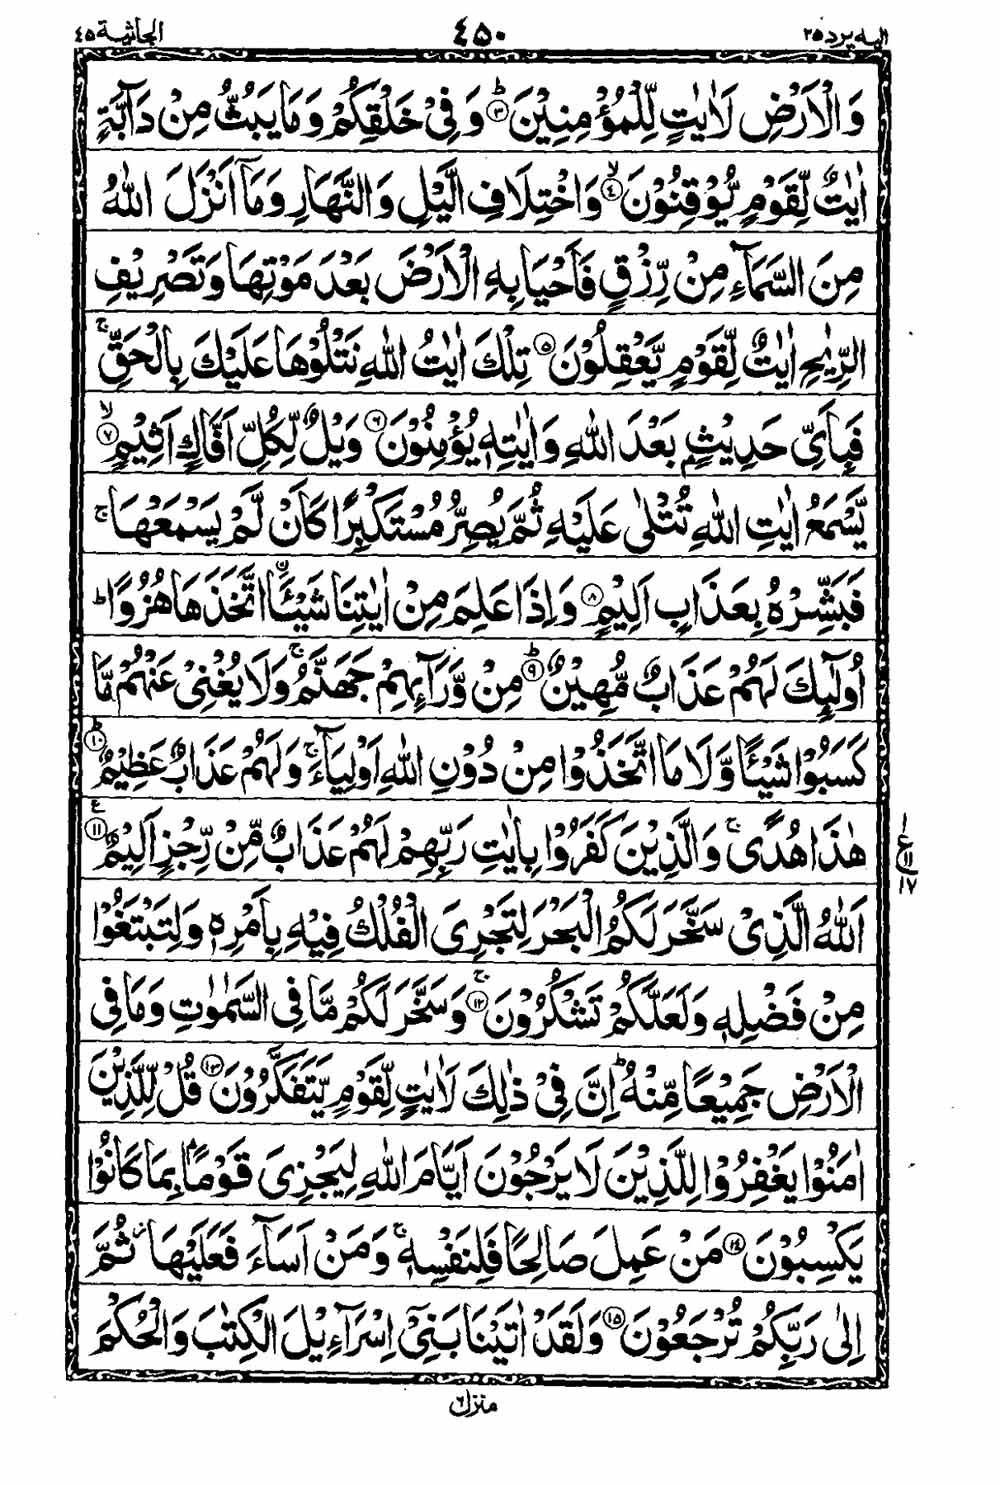 اليه يرد ٢٥ ٤٥٠ الجاثية ٤٥
وَالْاَرْضِ لَاٰيٰتٍ لِّلْمُؤْمِنِيْنَ ؕ‏﴿۳﴾ وَفِىْ خَلْقِكُمْ وَمَا يَبُثُّ مِنْ دَآبَّةٍ
اٰيٰتٌ لِّقَوْمٍ يُّوْقِنُوْنَ ۙ‏﴿۴﴾ وَاخْتِلَافِ الَّيْلِ وَالنَّهَارِ وَمَاۤ اَنْزَلَ اللّٰهُ
مِنَ السَّمَآءِ مِنْ رِّزْقٍ فَاَحْيَا بِهِ الْاَرْضَ بَعْدَ مَوْتِهَا وَتَصْرِيْفِ
الرِّيٰحِ اٰيٰتٌ لِّقَوْمٍ يَّعْقِلُوْنَ ﴿۵﴾ تِلْكَ اٰيٰتُ اللّٰهِ نَتْلُوْهَا عَلَيْكَ بِالْحَقِّ ۚ
فَبِاَىِّ حَدِيْثٍۭ بَعْدَ اللّٰهِ وَاٰيٰتِهٖ يُؤْمِنُوْنَ ﴿۶﴾ وَيْلٌ لِّكُلِّ اَفَّاكٍ اَثِيْمٍ ۙ‏﴿۷﴾
يَّسْمَعُ اٰيٰتِ اللّٰهِ تُتْلٰى عَلَيْهِ ثُمَّ يُصِرُّ مُسْتَكْبِرًا كَاَنْ لَّمْ يَسْمَعْهَا ۚ
فَبَشِّرْهُ بِعَذَابٍ اَلِيْمٍ ﴿۸﴾ وَاِذَا عَلِمَ مِنْ اٰيٰتِنَا شَيْــًٔا اۨتَّخَذَهَا هُزُوًا ؕ
اُولٰٓئِكَ لَهُمْ عَذَابٌ مُّهِيْنٌ ؕ‏﴿۹﴾ مِنْ وَّرَآئِهِمْ جَهَنَّمُ ۚ وَلَا يُغْنِىْ عَنْهُمْ مَّا
كَسَبُوْا شَيْــًٔا وَّلَا مَا اتَّخَذُوْا مِنْ دُوْنِ اللّٰهِ اَوْلِيَآءَ ۚ وَلَهُمْ عَذَابٌ عَظِيْمٌ ؕ‏﴿۱۰﴾
هٰذَا هُدًى ۚ وَالَّذِيْنَ كَفَرُوْا بِاٰيٰتِ رَبِّهِمْ لَهُمْ عَذَابٌ مِّنْ رِّجْزٍ اَلِيْمٌ ﴿۱۱﴾ ع
اَللّٰهُ الَّذِىْ سَخَّرَ لَكُمُ الْبَحْرَ لِتَجْرِىَ الْفُلْكُ فِيْهِ بِاَمْرِهٖ وَلِتَبْتَغُوْا
مِنْ فَضْلِهٖ وَلَعَلَّكُمْ تَشْكُرُوْنَ ۚ‏﴿۱۲﴾ وَسَخَّرَ لَكُمْ مَّا فِى السَّمٰوٰتِ وَمَا فِى
الْاَرْضِ جَمِيْعًا مِّنْهُ ؕ اِنَّ فِىْ ذٰلِكَ لَاٰيٰتٍ لِّقَوْمٍ يَّتَفَكَّرُوْنَ ﴿۱۳﴾ قُلْ لِّلَّذِيْنَ
اٰمَنُوْا يَغْفِرُوْا لِلَّذِيْنَ لَا يَرْجُوْنَ اَيَّامَ اللّٰهِ لِيَجْزِىَ قَوْمًۢا بِمَا كَانُوْا
يَكْسِبُوْنَ ﴿۱۴﴾ مَنْ عَمِلَ صَالِحًا فَلِنَفْسِهٖ ۚ وَمَنْ اَسَآءَ فَعَلَيْهَا ؗ ثُمَّ
اِلٰى رَبِّكُمْ تُرْجَعُوْنَ ﴿۱۵﴾ وَلَقَدْ اٰتَيْنَا بَنِىْۤ اِسْرَآءِيْلَ الْكِتٰبَ وَالْحُكْمَ
منزل ٦
١
ع ١١
١٧